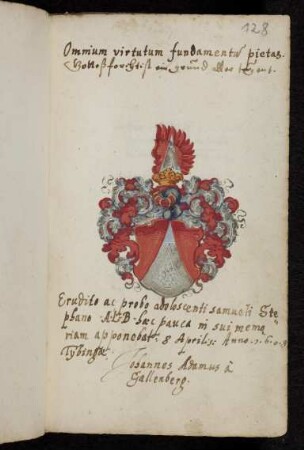 128
Omnium virtutum fundamentū pietas.
Gottesforcht ist ein grund aller tugent.
Erudito ac probo adolescenti samueli Ste=
phano haec pauca in sui memo
riam apponebat. 8 Aprilis: Anno
Tybingae
Johannes Adamus à
Gallenberg.